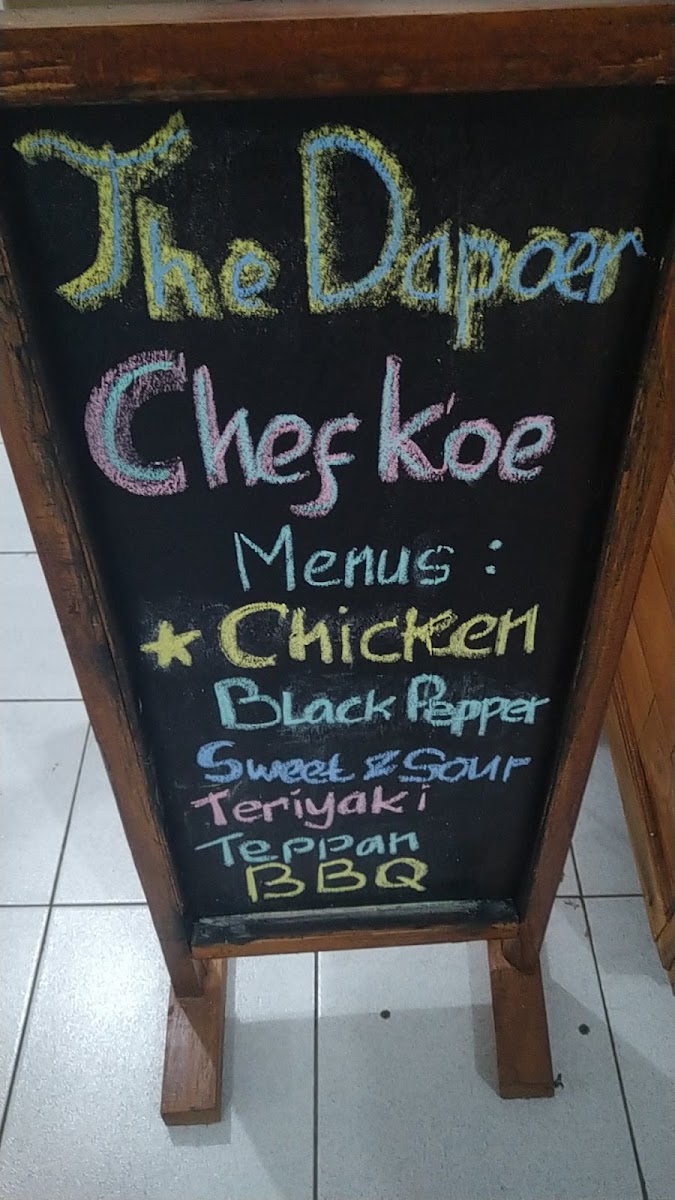 The Dapoer
Chef k'oe
Menus :
* Chicken
Black Pepper
Sweet & Sour
Teriyaki
Teppan
BBQ